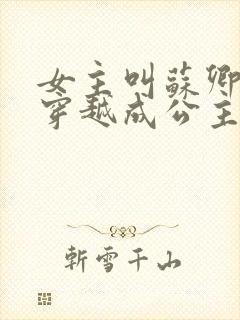 女主叫蘇卿
穿越成公主
斬雪千山